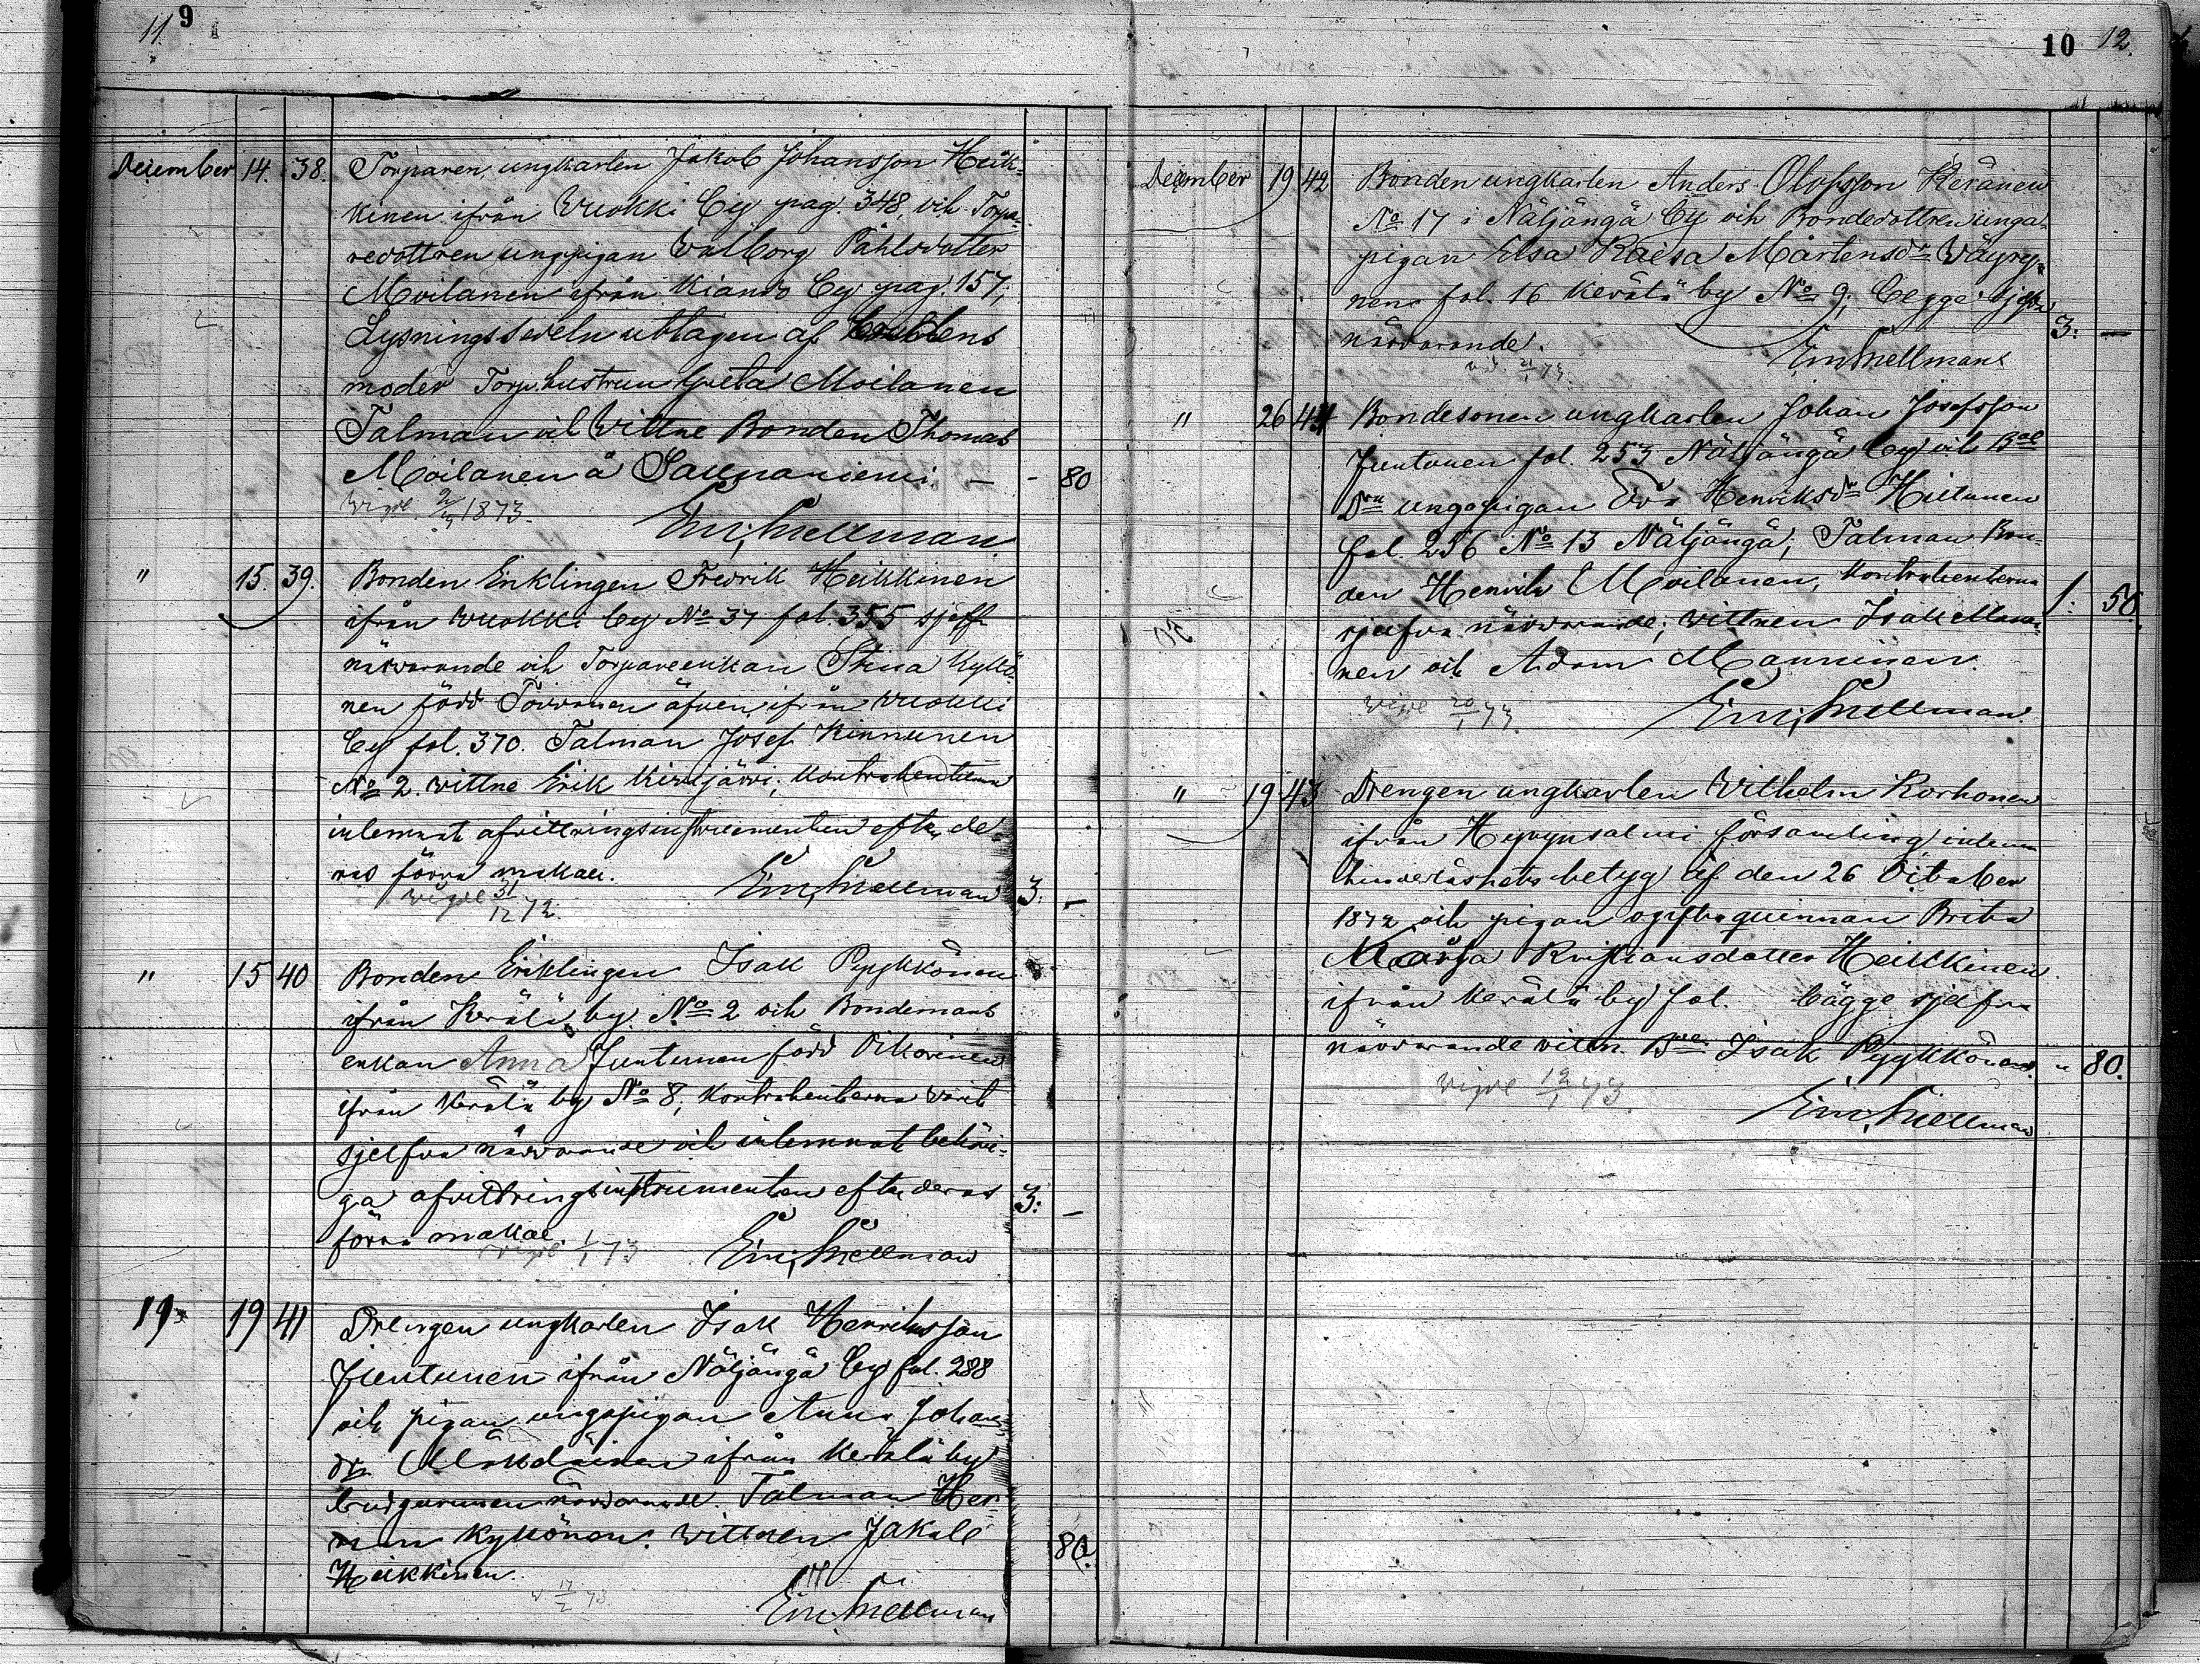 11 9
December 14. 38. Torparen ungkarlen Jakob Johansson Heik-
kinen ifrån Wuokki by pag. 348, och Torpa-
redottren ungpigan Walborg Påhlsdotter
Moilanen ifrån Kianto by pag. 157;
Lysningssedeln uttagen af brudens
moder Torp.hustrun Greta Moilanen
Talman och Wittne Bonden Thomas
Moilanen å Saunaniemi. — - 80
Vigde 2/3 1873.
Em. Snellman.
" 15. 39. Bonden Enklingen Fredrik Heikkinen
ifrån Wuokki by No 37 fol. 355 sjelf
närvarande och Torpareenkan Stina Kykkö-
nen född Torvinen äfven ifrån Wuokki
by fol. 370. Talman Josef Kinnunen
No 2. wittne Erik Kivijärvi; Kontrahenterna
inlemnat afvittringsinstrumenten efter de-
ras förra makar.
Em. Snellman 3. —
vigde 31/12 72.
" 15 40 Bonden Enklingen Isak Pyykkönen
ifrån Kerälä by No 2 och Bondemans
enkan Anna Juntunen född Oikarinen
ifrån Kerälä by No 8, Kontrahenterna varit
sjelfva närvarande och inlemnat behöri-
ga afvittringsinstrumenten efter deras 3. —
förra makar.
vigde 1/1 73 Em. Snellman
19 19 41 Drengen ungkarlen Isak Henriksson
Juntunen ifrån Näljängä by fol. 288
och pigan ungapigan Anna Johans-
dr ifrån Kerälä by
brudgummen närvarande. Talman Her-
man Kykkönen. wittnen Jakob 80.
Heikkinen.
17/2 73
Em. Snellman
10 12.
December 19 42 Bonden ungkarlen Anders Olofsson Keränen
No 17 i Näljängä by och Bondedottren unga
pigan Elsa Kaisa Mårtensdr Wäyry-
nen fol. 16 Kerälä by No 9; begge sjelfva 3. —
närvarande.
Em Snellman
21/1 73.
" 26 44 Bondesonen ungkarlen Johan Josefsson
Juntunen fol. 253 Näljängä by och
ungapigan Eva Henriksdr Hiltunen
fol. 256 No 13 Näljängä; Talman Bon-
den Henrik Moilanen, Kontrahenterna
sjelfva närvarande; wittnen Isak Manni- 1: 50.
nen och Adam Manninen.
vigde 20/1 73. Em. Snellman.
" 19 43 Drengen ungkarlen Wilhelm Korhonen
ifrån Hyrynsalmi församling inlem
hinderlöshets betyg af den 26 October
1872 och pigan ogifta qvinnan Brita
Maria Kristiansdotter Heikkinen
ifrån Kerälä by fol. bägge sjelfva
närvarande vittn. Isak Pyykkönen. " 80.
vigde 12/1 73
Em. Snellman